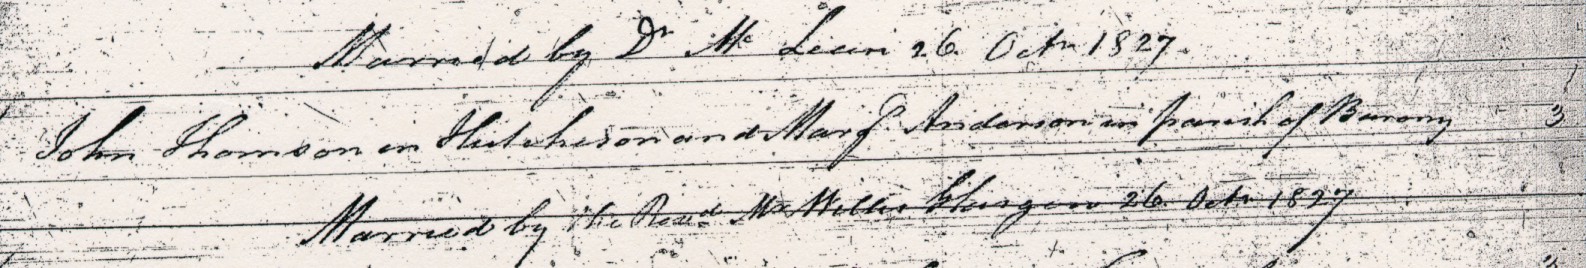 Married by Dr Mc Lean 26 Octr 1827.
John Thomson in Hutcheson and Margt Anderson in parish of Barony 3
Married by the Revd Mr Willis Glasgow 26 Octr 1827